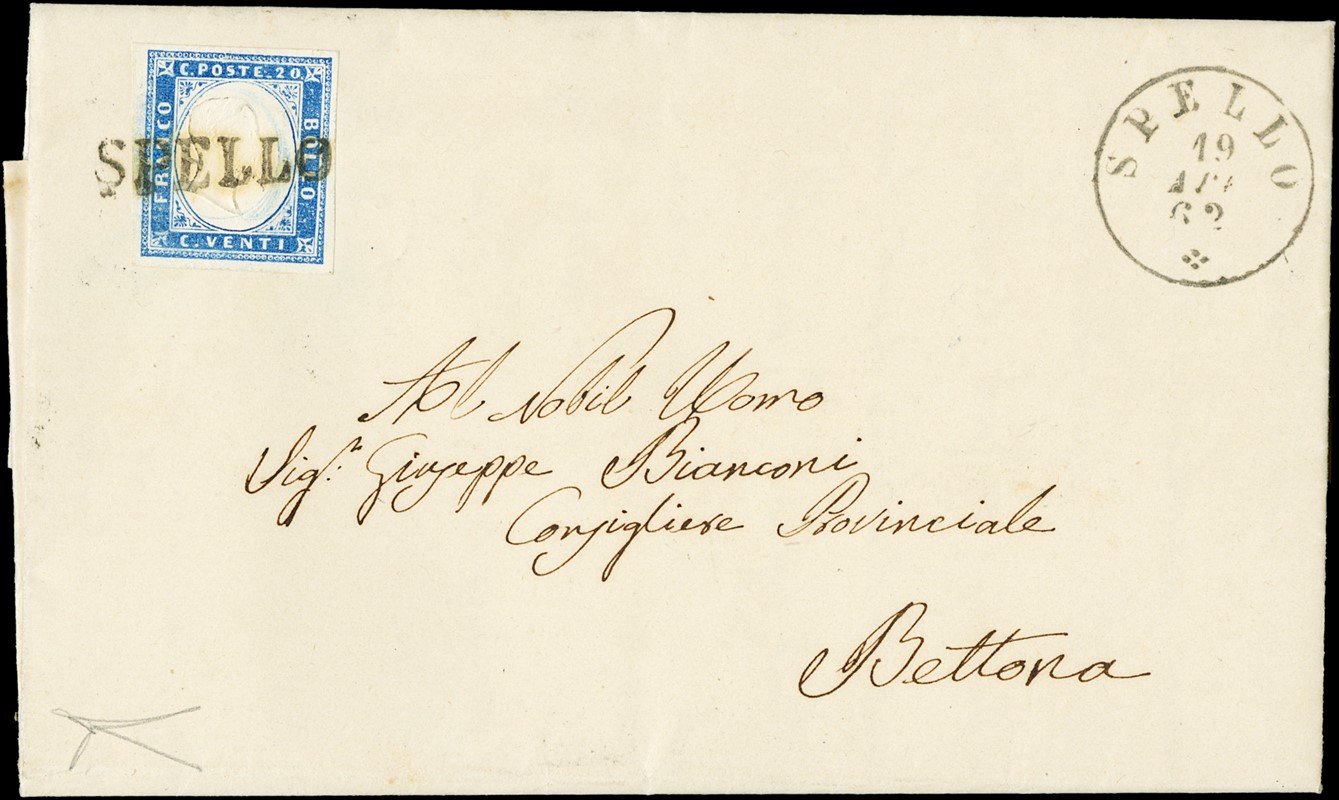 C. POSTE. 20
FRANCO
BOLLO
C. VENTI
SPELLO
SPELLO
19
APR
62
Al Nobil Uomo
Sig.r Giuseppe Bianconi
Consigliere Provinciale
Bettona